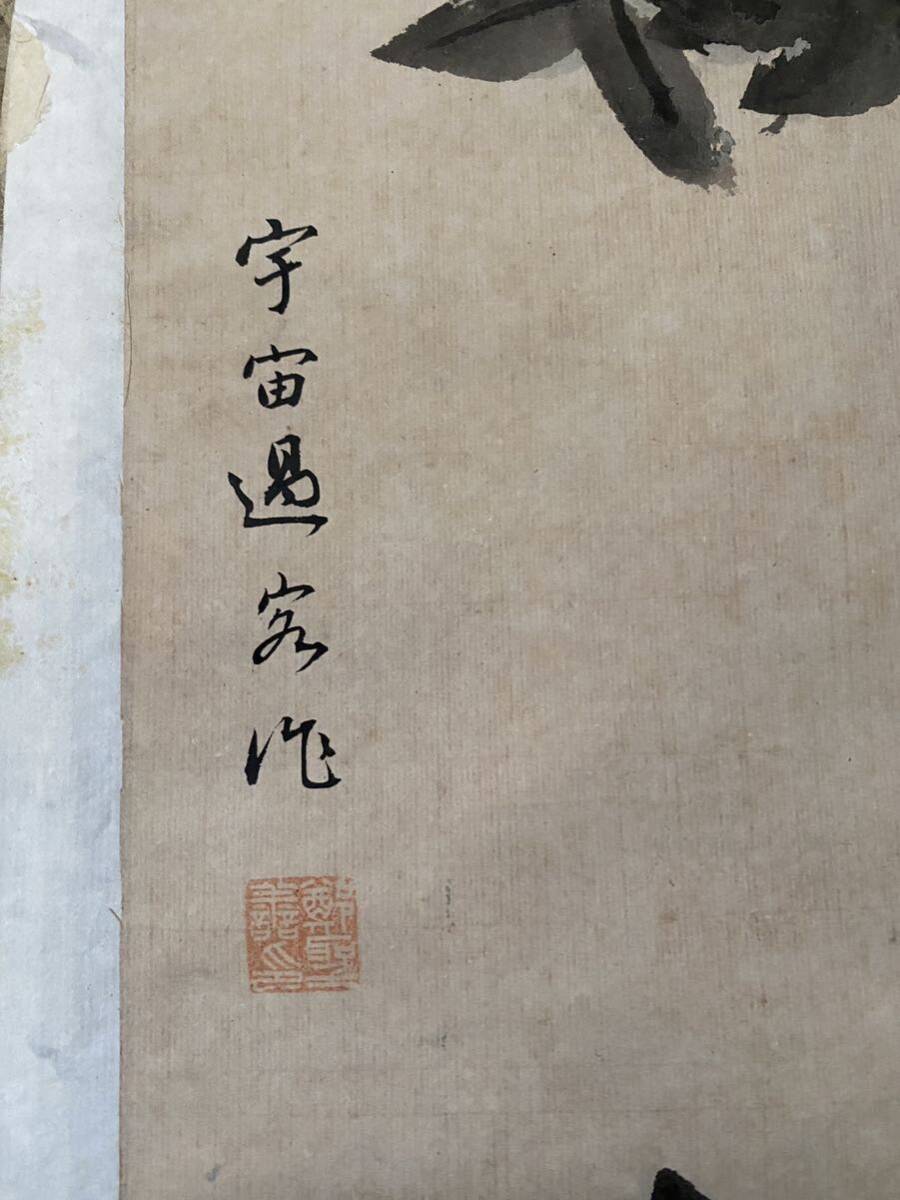 宇宙過客作